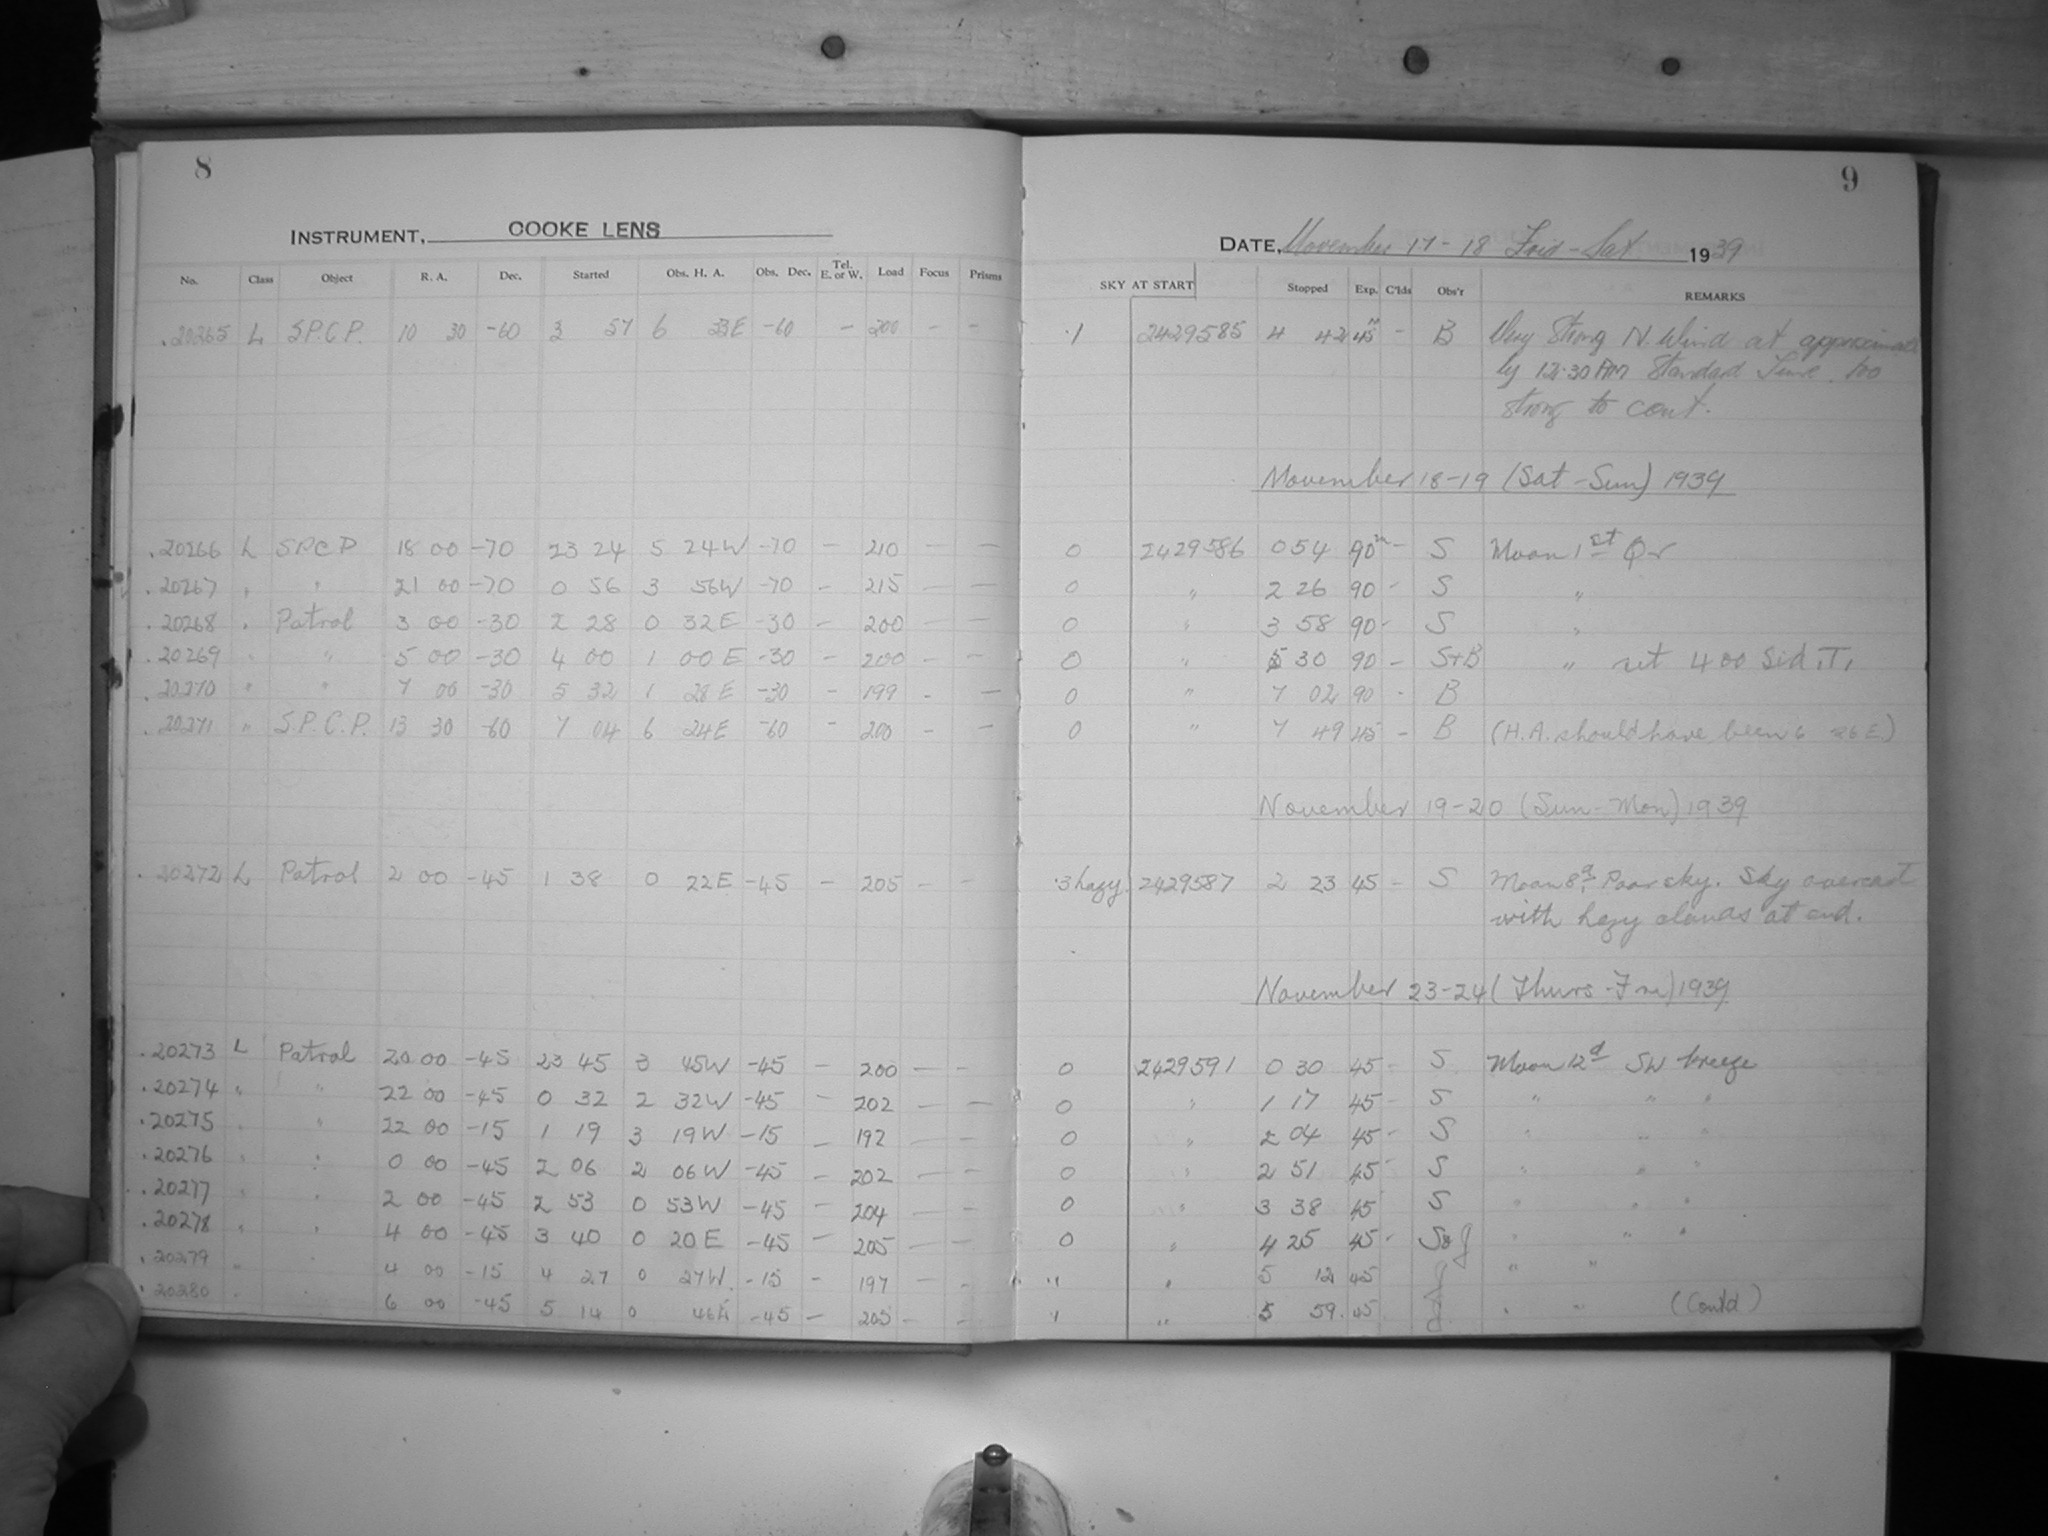 8
INSTRUMENT, COOKE LENS
No. Class Object R. A. Dec. Started Obs. H. A. Obs. Dec. Tel. E. or W. Load Focus Prisms
.20265 L S.P.C.P. 10 30 -60 3 57 6 33E -60 - 200 - -
.20266 L S.P.C.P 18 00 -70 23 24 5 24W -70 - 210 - -
.20267 " " 21 00 -70 0 56 3 56W -70 - 215 - -
.20268 " Patrol 3 00 -30 2 28 0 32E -30 - 200 - -
.20269 " " 5 00 -30 4 00 1 00E -30 - 200 - -
.20270 " " 7 00 -30 5 32 1 28E -30 - 199 - -
.20271 " S.P.C.P. 13 30 -60 7 04 6 24E -60 - 200 - -
.20272 L Patrol 2 00 -45 1 38 0 22E -45 - 205 - -
.20273 L Patrol 20 00 -45 23 45 3 45W -45 - 200 - -
.20274 " " 22 00 -45 0 32 2 32W -45 - 202 - -
.20275 " " 22 00 -15 1 19 3 19W -15 - 192 - -
.20276 " " 0 00 -45 2 06 2 06W -45 - 202 - -
.20277 " " 2 00 -45 2 53 0 53W -45 - 204 - -
.20278 " " 4 00 -45 3 40 0 20E -45 - 205 - -
.20279 " " 4 00 -15 4 27 0 27W -15 - 197 - -
.20280 " 6 00 -45 5 14 0 46E -45 - 205 - -
9
DATE, November 17-18 Fri-Sat 1939
SKY AT START Stopped Exp. C'lds Obs'r REMARKS
.1 2429585 4 42 45m - B Very Strong N. Wind at approximate
ly 12.30 AM Standard Time. too
strong to cont.
November 18-19 (Sat-Sun) 1939
0 2429586 0 54 90m - S Moon 1st Qr
0 " 2 26 90 - S "
0 " 3 58 90 - S "
0 " 5 30 90 - S+B " set 4 00 Sid. T.
0 " 7 02 90 - B
0 " 7 49 45 - B (H.A. should have been 6 26E)
November 19-20 (Sun-Mon) 1939
.3 hazy. 2429587 2 23 45 - S Moon 8d. Poor sky. Sky overcast
with hazy clouds at end.
November 23-24 (Thurs-Fri) 1939
0 2429591 0 30 45 - S Moon 12d SW breeze
0 " 1 17 45 - S " " "
0 " 2 04 45 - S " " "
0 " 2 51 45 - S " " "
0 " 3 38 45 S " " "
0 " 4 25 45 - " " "
.1 " 5 12 45 " "
.1 " 5 59 45 " " (Cont'd)